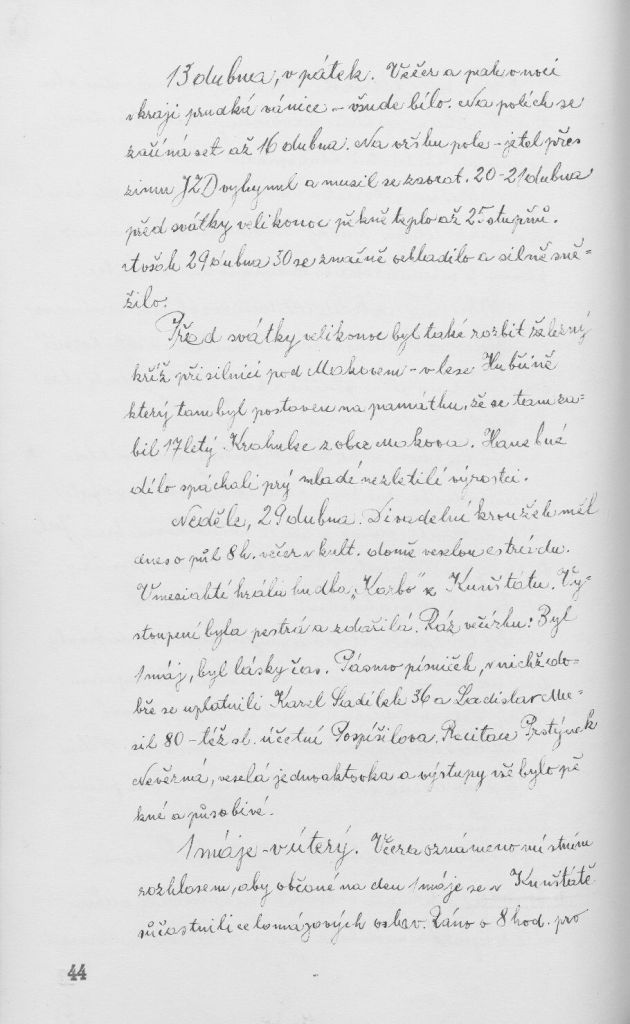 13 dubna, v pátek. Večer a pak v noci
v kraji prudká vánice - všude bílo. Na polích se
začíná set až 16 dubna. Na vršku pole - jetel přes
zimu JZD vyhynul a musil se zaorat. 20-21 dubna
před svátky velikonoc pěkně teplo až 25 stupňů.
Avšak 29 dubna 30 se značně ochladilo a silně sně-
žilo.
Před svátky velikonoc byl také rozbit železný
kříž při silnici pod Makovem - v lese Hubůině
který tam byl postaven na památku, že se tam za-
bil 17letý Krahulec z obce Makova. Hanebné
dílo spáchali prý mladé nezletilí výrostci.
Neděle, 29 dubna. Divadelní kroužek měl
dnes o půl 8 h. večer v kult. domě veselou estrádu.
V mezičahtí hrála hudba „Korbo" z Kunštátu. Vy-
stoupení byla pestrá a zdařilá. Ráz večírku: Byl
1 máj, byl lásky čas. Pásmo písniček, v nichž do-
bře se uplatnili Karel Sadílek 36 a Ladislav Mu-
sil 80 - též sl. účetní Pospíšilova. Recitace Prstýnek
Nevěrná, veselá jednoaktovka a výstupy vše bylo pě
kné a působivé.
1 máje - v úterý. Včera oznámeno místním
rozhlasem, aby občané na den 1 máje se v Kunštátě
súčastnili celomájových oslav. Ráno o 8 hod. pro
44